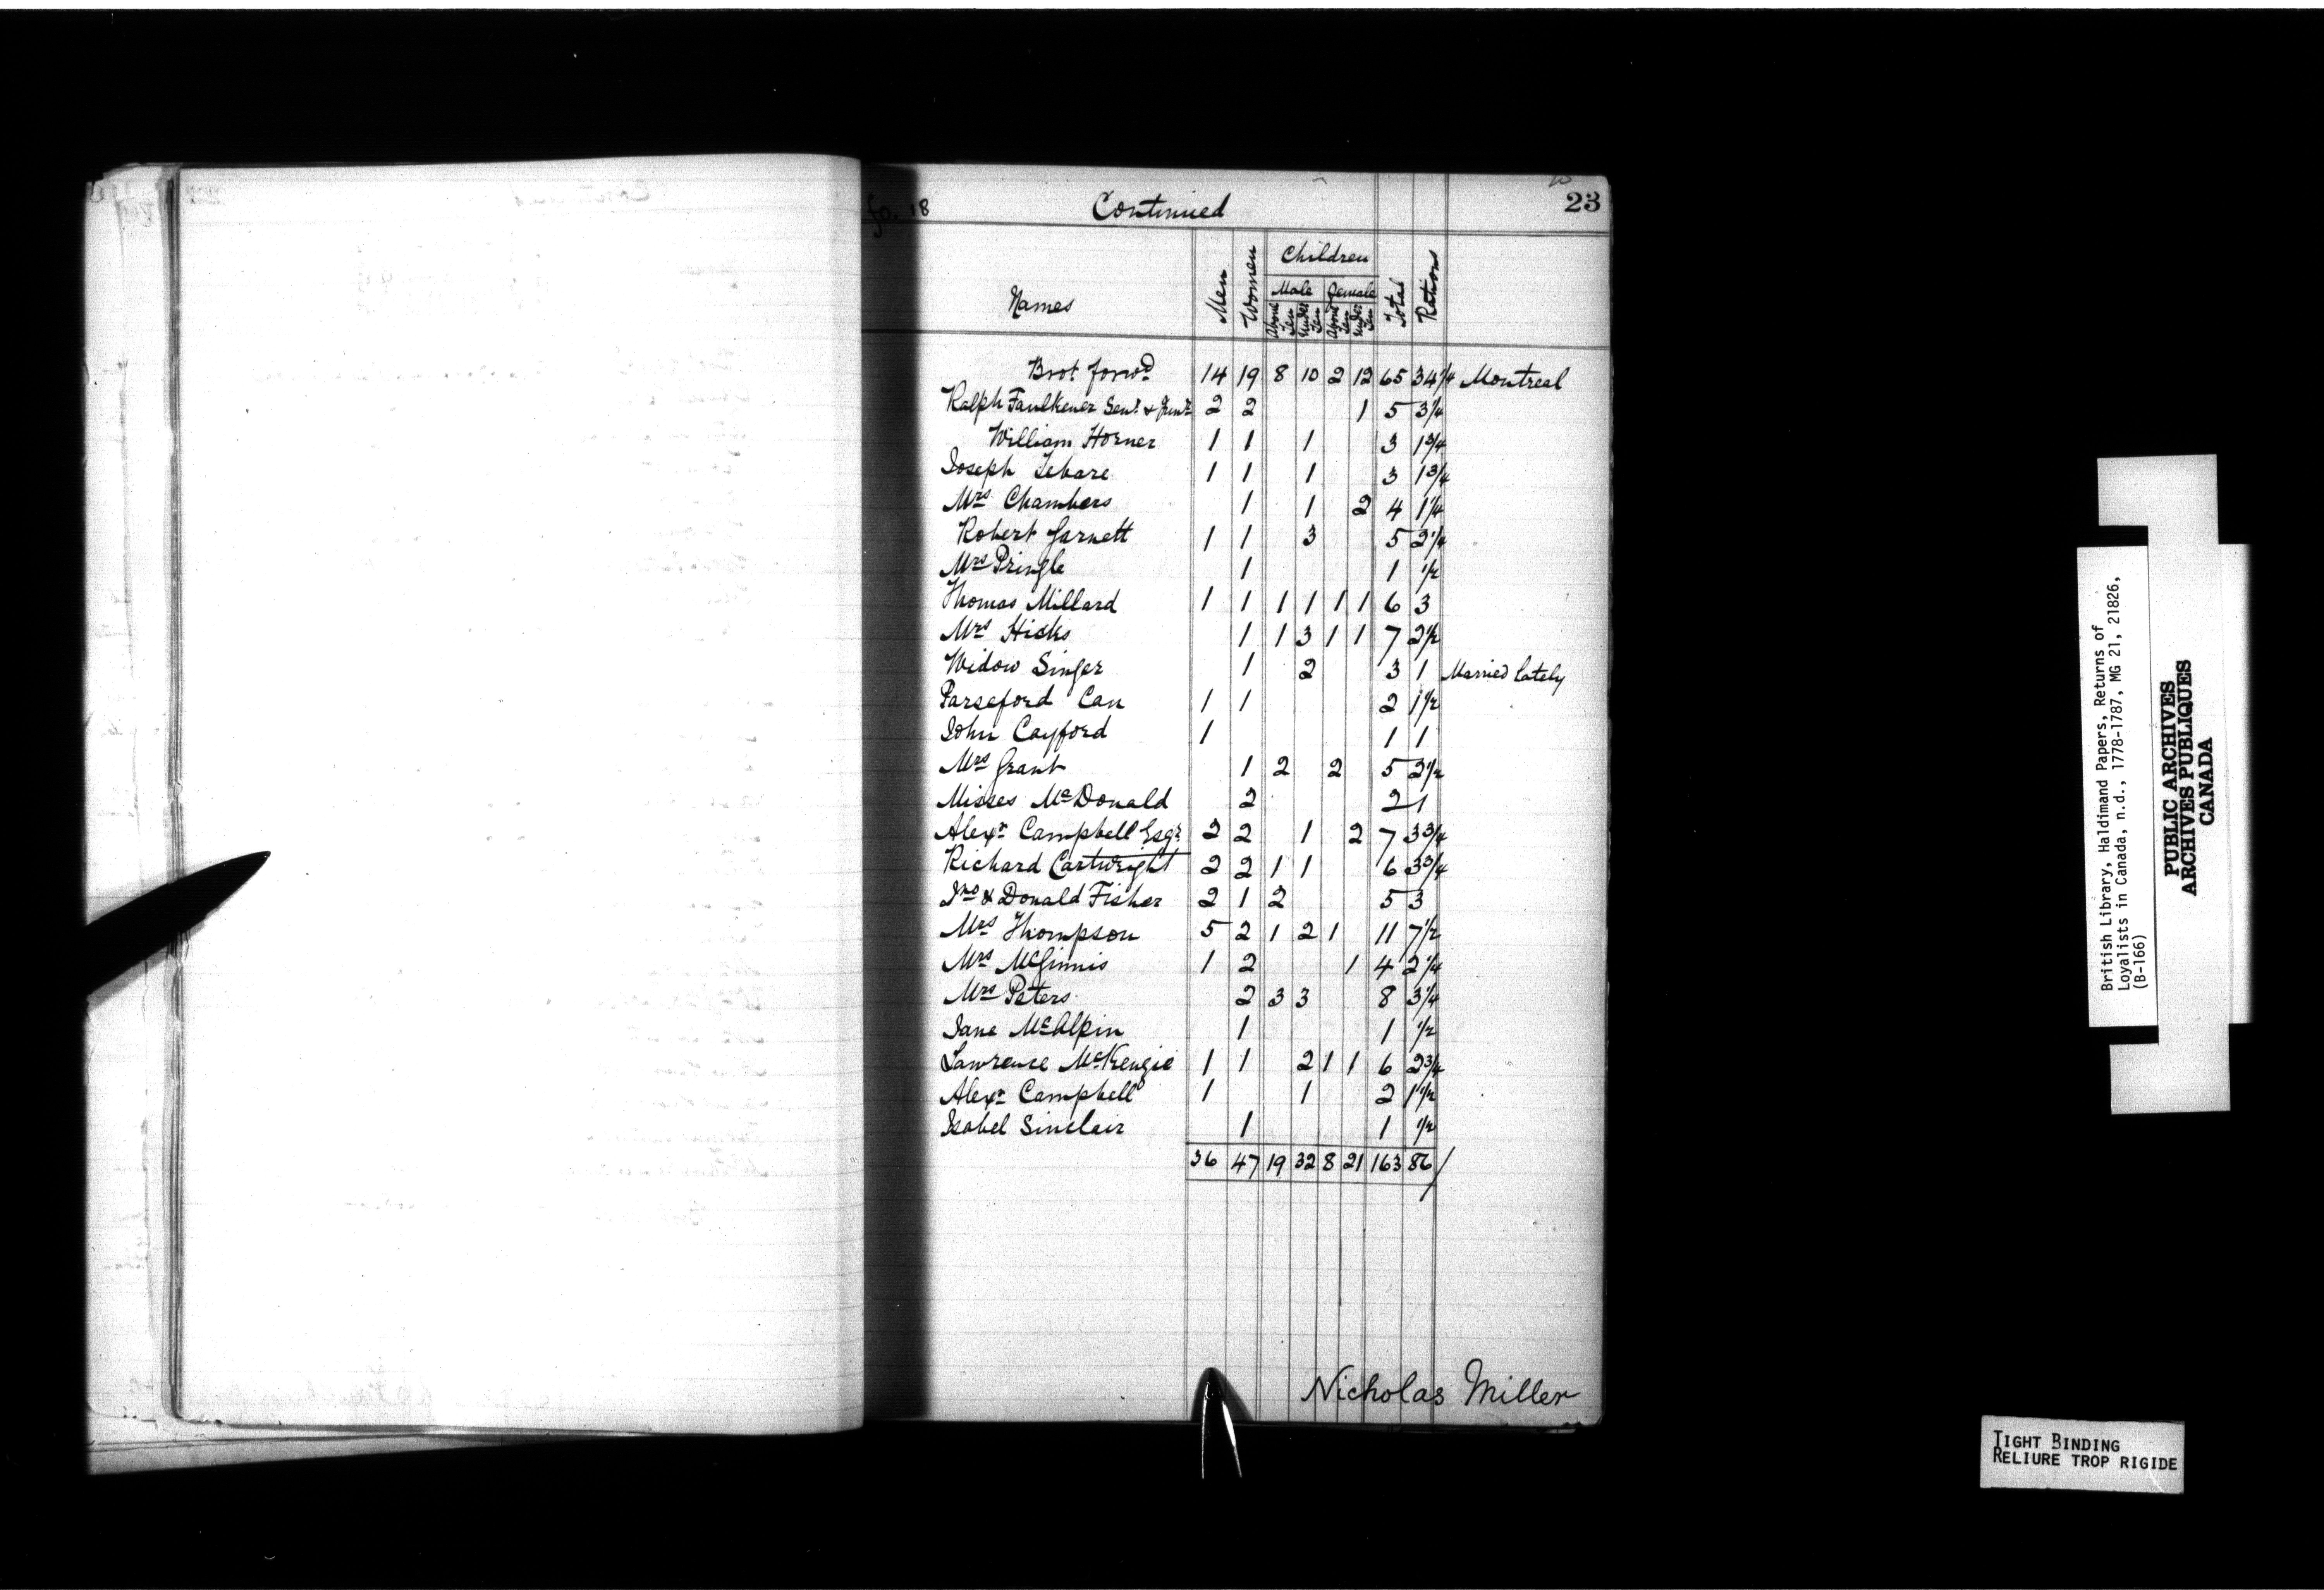 fo. 18 Continued 23
Names Men Women Children Total Rations
Male Female
Above Ten Under Ten Above Ten Under Ten
Brot. forwd. 14 19 8 10 2 12 65 34 1/4 Montreal
Ralph Faulkener Senr. & Junr. 2 2 1 5 3 1/4
William Horner 1 1 1 3 1 3/4
Joseph Lebare 1 1 1 3 1 3/4
Mrs Chambers 1 1 2 4 1 1/4
Robert Garnett 1 1 3 5 2 1/4
Mrs Pringle 1 1 1/2
Thomas Millard 1 1 1 1 1 1 6 3
Mrs Hicks 1 1 3 1 1 7 2 1/2
Widow Singer 1 2 3 1 Married lately
Parseford Can 1 1 2 1 1/2
John Cayford 1 1 1
Mrs Grant 1 2 2 5 2 1/2
Misses McDonald 2 2 1
Alexr Campbell Esqr. 2 2 1 2 7 3 3/4
Richard Cartwright 2 2 1 1 6 3 3/4
Jno & Donald Fisher 2 1 2 5 3
Mrs Thompson 5 2 1 2 1 11 7 1/2
Mrs McGinnis 1 2 1 4 2 1/4
Mrs Peters 2 3 3 8 3 1/4
Jane McAlpin 1 1 1/2
Lawrence McKenzie 1 1 2 1 1 6 2 3/4
Alexr Campbell 1 1 2 1 1/2
Isabel Sinclair 1 1 1/2
36 47 19 32 8 21 163 86
Nicholas Miller
British Library, Haldimand Papers, Returns of
Loyalists in Canada, n.d., 1778-1787, MG 21, 21826,
(B-166)
PUBLIC ARCHIVES
ARCHIVES PUBLIQUES
CANADA
TIGHT BINDING
RELIURE TROP RIGIDE